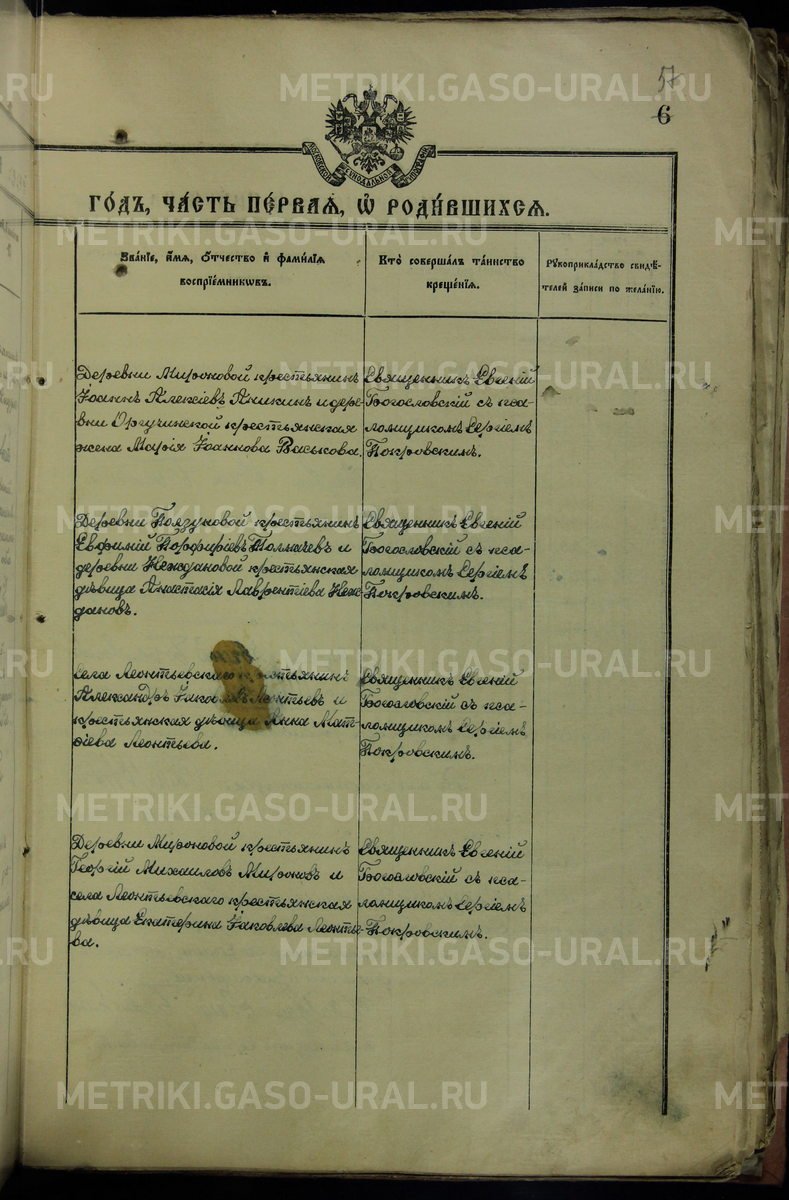 57
6
МОСКОВСКОЙ СѴНОДАЛЬНОЙ
ГО́ДЪ, ЧА́СТЬ ПЕ́РВАѦ, Ѡ҆ РОДИ́ВШИХСѦ.
Зва́нїе, и҆́мѧ, ѻ҆́тчество и҆ фами́лїѧ
воспрїе́мникѡвъ.
Кто̀ соверша́лъ та́инство
креще́нїѧ.
Рꙋкоприкла́дство свидѣ́-
телей за́писи по жела́нїю.
Деревни Мироновой крестьянинъ
Іоаннъ Алексѣевъ Аникинъ и дере-
вни Ӧргучинской крестьянская
жена Марія Іоаннова Васькова.
Священникъ Евгеній
Богословский съ пса-
ломщикомъ Сергіемъ
Покровскимъ.
Деревни Ползуновой крестьянинъ
Евфимій Порфиріевъ Толмачевъ и
деревни Неждановой крестьянская
дѣвица Анастасія Лаврентіева Неж-
дановъ.
Священникъ Евгеній
Богословскій съ пса-
ломщикомъ Сергіемъ
Покровскимъ.
Села Леонтьевскаго крестьянинъ
Александръ Леонтьевъ и
крестьянская дѣвица Анна Мат-
ѳіева Леонтьева.
Священникъ Евгеній
Богословскій съ пса-
ломщикомъ Сергіемъ
Покровскимъ.
Деревни Мироновой крестьянинъ
Георгій Михаиловъ Мироновъ и
села Леонтьевскаго крестьянская
дѣвица Екатерина Іаковлева Леонтье-
ва.
Священникъ Евгеній
Богословскій съ пса-
ломщикомъ Сергіемъ
Покровскимъ.
METRIKI.GASO-URAL.RU